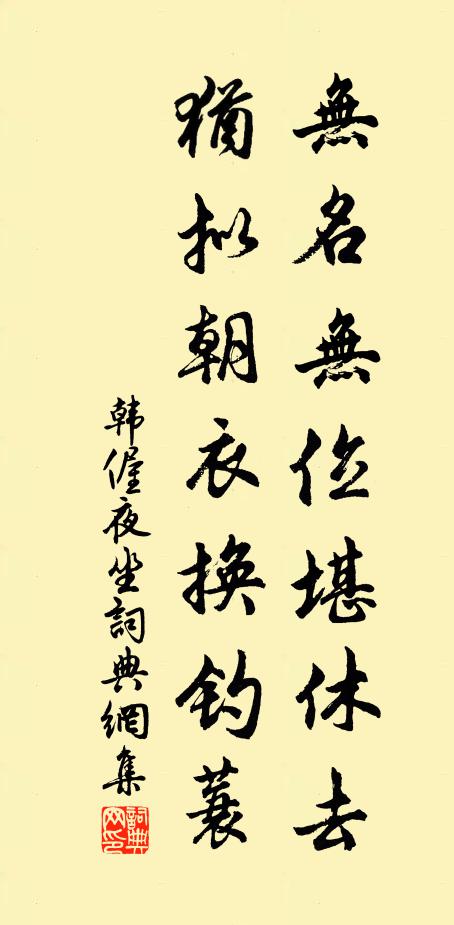 無名無位堪休去
猶拟朝衣換釣蓑
韩偓夜坐詞典網集
詞典網印